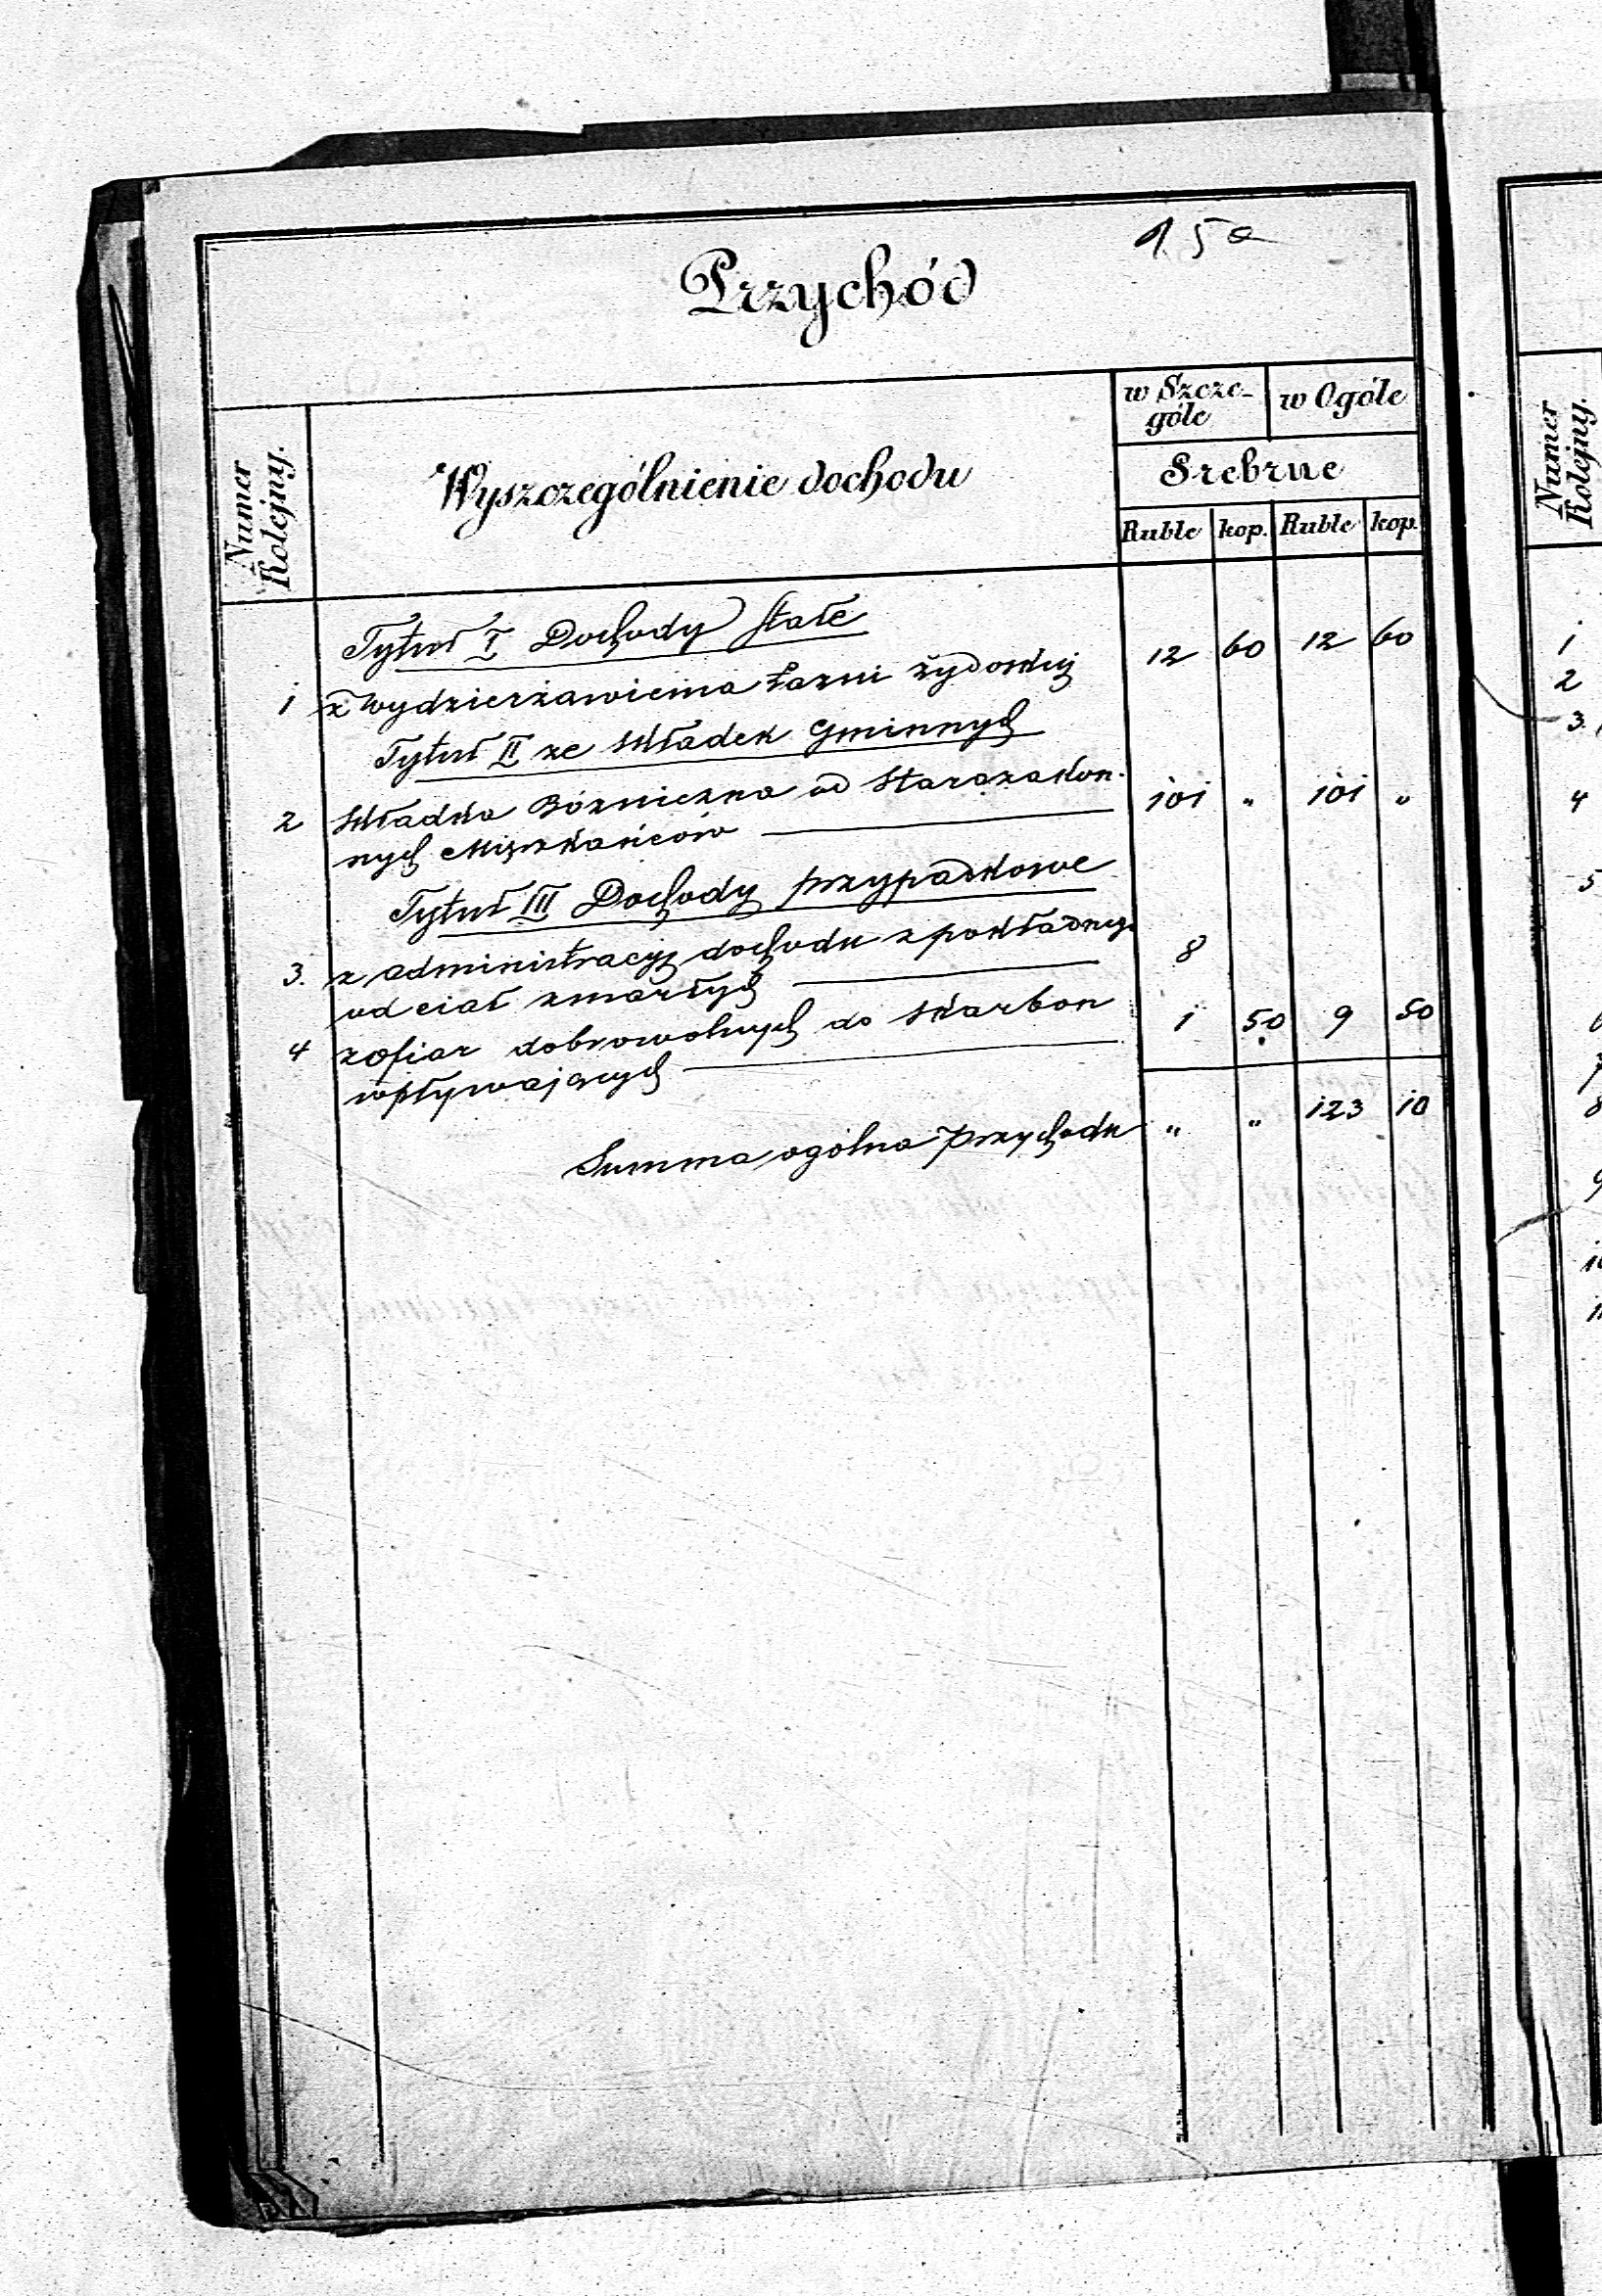 150
Przychód
Numer Kolejny.
Wyszczególnienie dochodu
w Szcze-
góle
w Ogóle
Srebrne
Ruble kop. Ruble kop.
Tytuł I Dochody stałe
1 z wydzierżawienia Łazni żydoskiej 12 60 12 60
Tytuł II ze składek Gminnych
2 składka Bóźniczna od Starozakon-
nych Mięszkańców 101 " 101 "
Tytuł III Dochody przypadkowe
3. z administracyi dochodu z pokładnego
od ciał zmarłych 8
4 z ofiar dobrowolnych do skarbon
wpływających 1 50 9 50
Summa ogólna Przychodu " " 123 10
Numer
Kolejny.
1
2
3
4
5
6
7
8
9
10
11